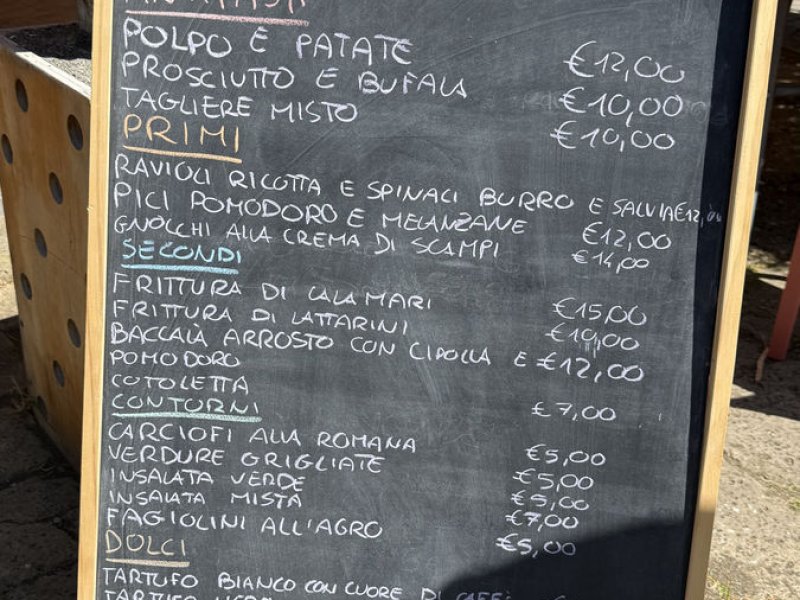 POLPO E PATATE €12,00
PROSCIUTTO E BUFALA €10,00
TAGLIERE MISTO €10,00
PRIMI
RAVIOLI RICOTTA E SPINACI BURRO E SALVIA €12,00
PICI POMODORO E MELANZANE €12,00
GNOCCHI ALLA CREMA DI SCAMPI €14,00
SECONDI
FRITTURA DI CALAMARI €15,00
FRITTURA DI LATTARINI €10,00
BACCALÀ ARROSTO CON CIPOLLA E €12,00
POMODORO
COTOLETTA €7,00
CONTORNI
CARCIOFI ALLA ROMANA €5,00
VERDURE GRIGLIATE €5,00
INSALATA VERDE €5,00
INSALATA MISTA €7,00
FAGIOLINI ALL'AGRO €5,00
DOLCI
TARTUFO BIANCO CON CUORE DI CAFFÈ
TARTUFO